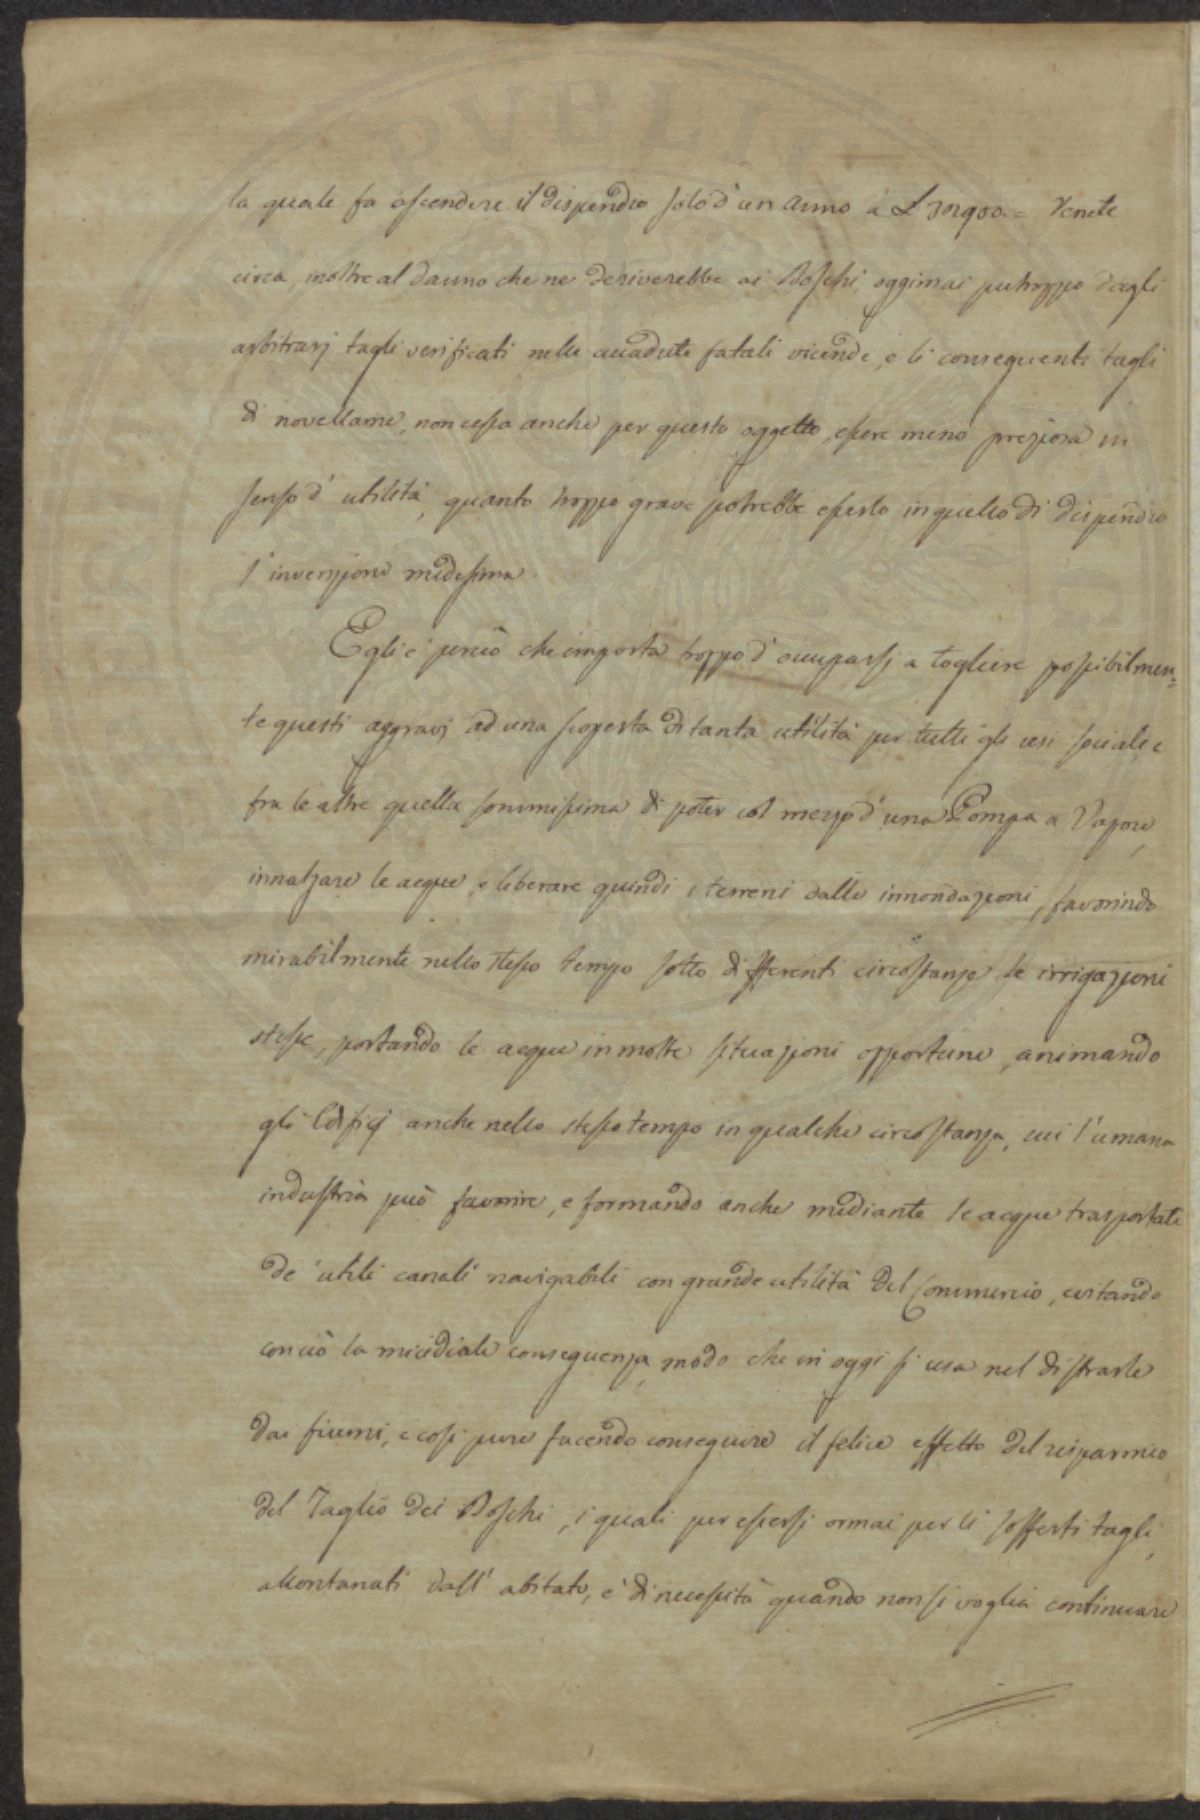 la quale fa ascendere il dispendio solo d'un anno a L Venete
circa, inoltre al danno che ne deriverebbe ai Boschi, oggimai putroppo dagli
arbitrarj tagli verificati nelle accadute fatali vicende, e li conseguenti tagli
di novellame, non cessa anche per questo oggetto, essere meno preziosa in
senso d'utilità, quanto troppo grave potrebbe esserlo in quello di dispendio
l'invenzione medesima.
Egli è perciò che importa troppo d'occuparsj a togliere possibilmen=
te questi aggravj ad una scoperta di tanta utilità per tutti gli usi sociali, e
fra le altre quella sommissima di poter col mezzo d'una Pompa a Vapore,
innalzare le acque, e liberare quindi i terreni dalle innondazioni, favorindo
mirabilmente nello stesso tempo sotto differenti circostanze le irrigazioni
stesse, portando le acque in molte situazioni opportune, animando
gli Edificj anche nello stesso tempo in qualche circostanza, cui l'umana
industria può favorire, e formando anche mediante le acque trasportate
de' utili canali navigabili con grande utilità del Commercio, evitando
con ciò la micidiale conseguenza, modo che in oggi si usa nel distrarle
dai fiumi, e così pure facendo conseguire il felice effetto del risparmio
del Taglio dei Boschi, i quali per essersj ormai per li sofferti tagli,
allontanati dall'abitato, è di necessità quando non si voglia continuare